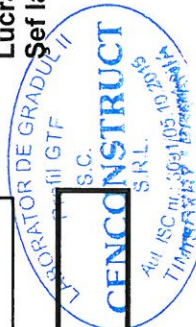 Lucra
Șef la
LABORATOR DE GRADUL II
GTF
S.C.
CENCONSTRUCT
S.R.L.
Aut. ISC nr.: 3091/05.10.2015